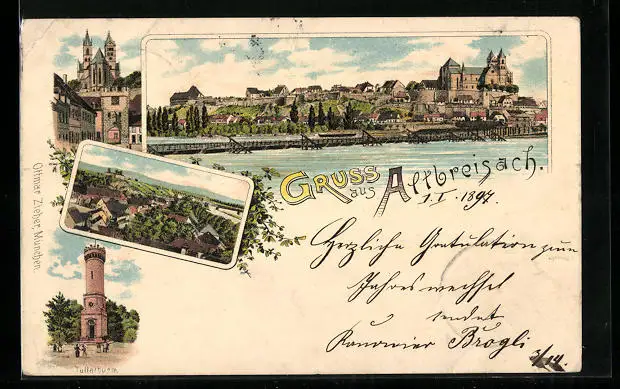 GRUSS aus Altbreisach.
1.I.1897.
Herzliche Gratulation zum
Jahreswechsel
sendet
Kanonier Brogli
Ottmar Zieher, München.
Tullathurm.